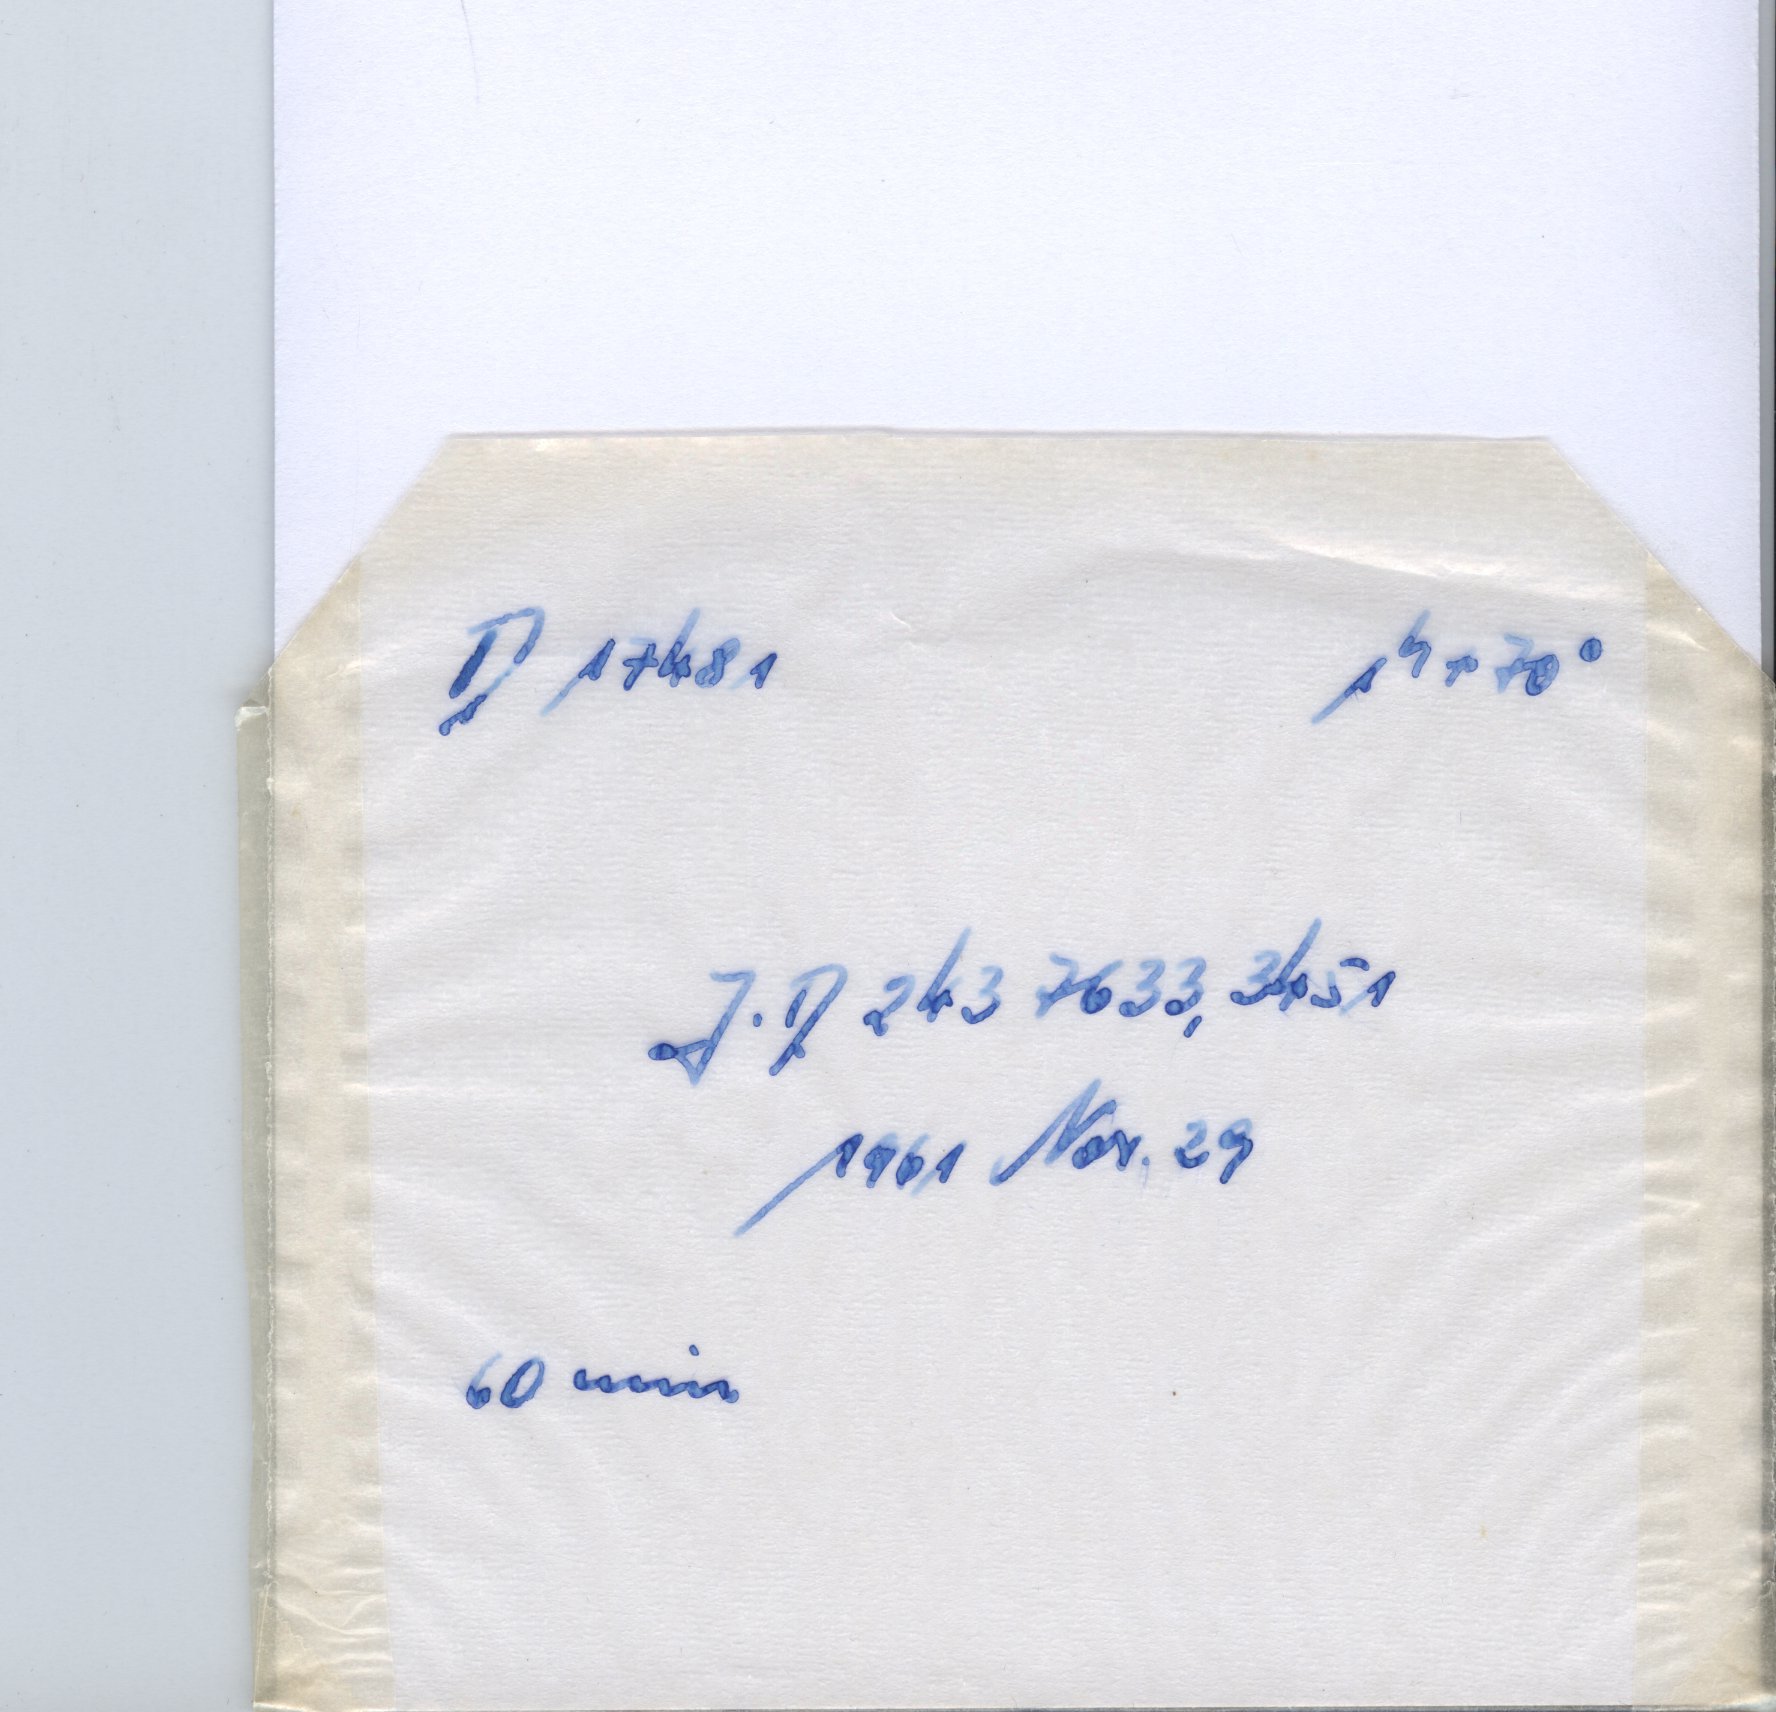 D 17481 1ʰ + 70°
J.D 243 7633,3451
1961 Nov. 29
60 min